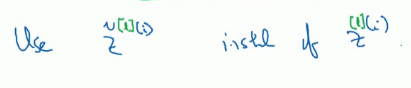 Use z̃[l](i) instead of z[l](i).